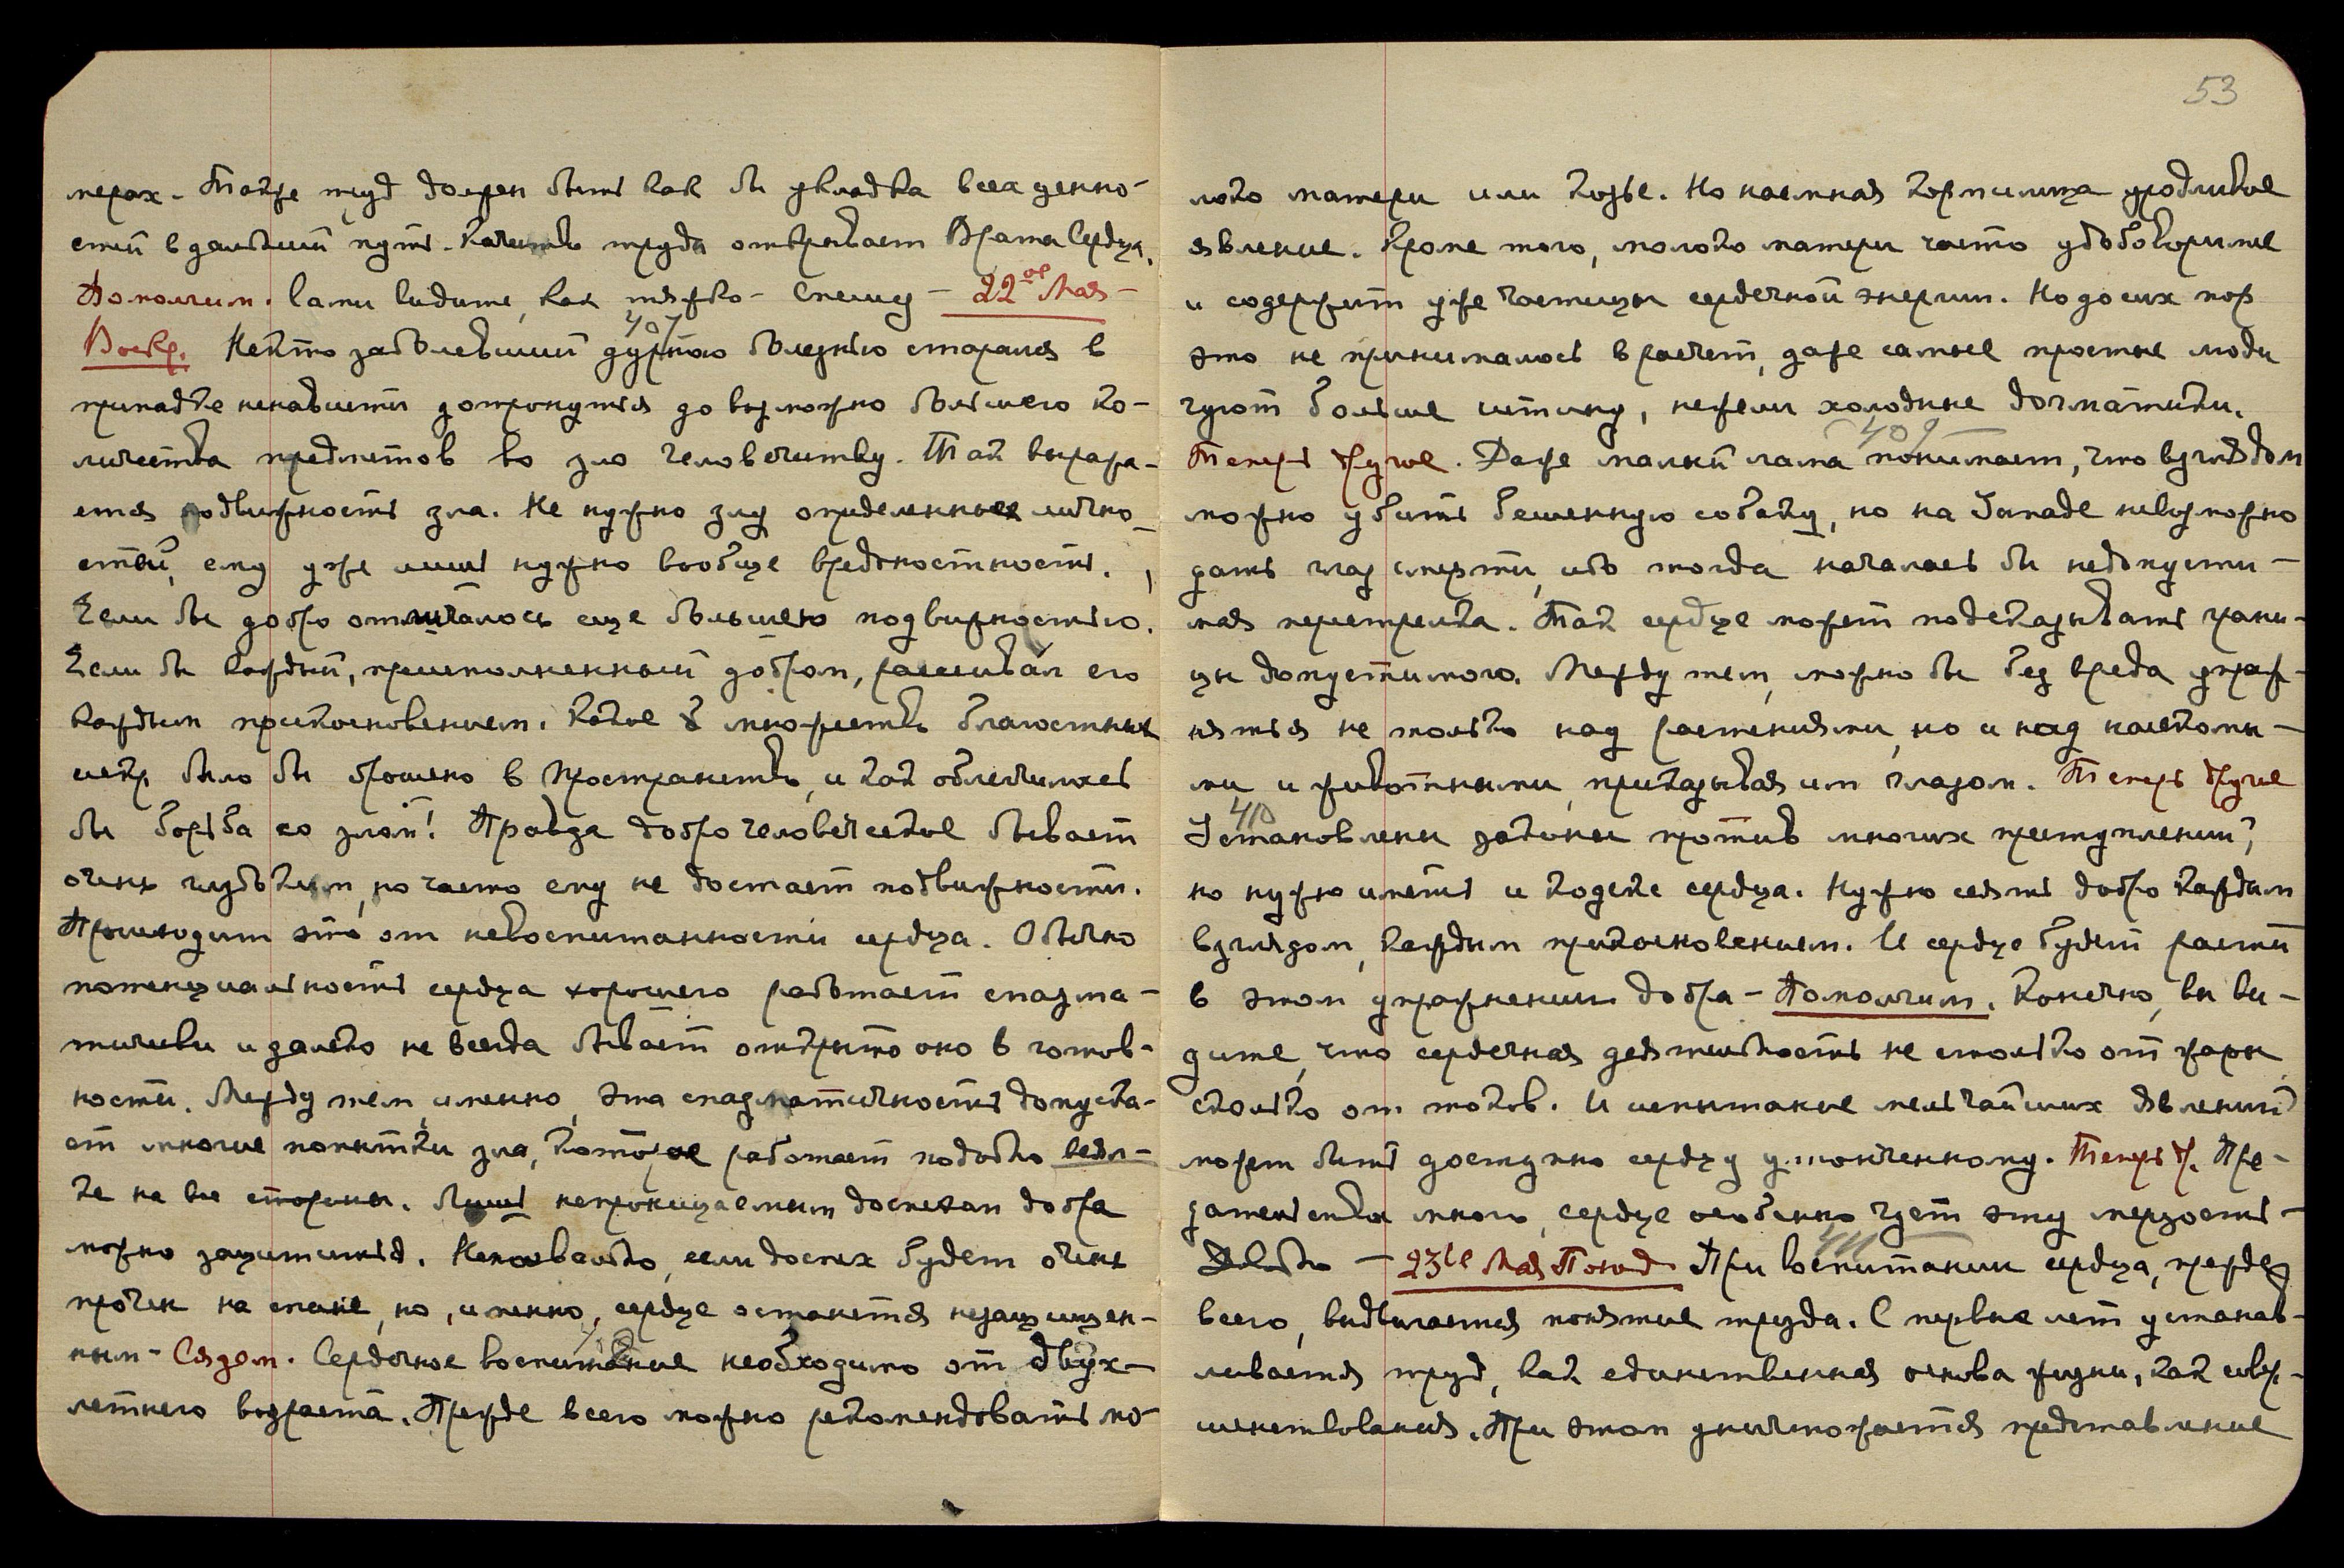 мерах. Также труд должен быть как бы укладка всех ценно-
стей в дальний путь. Качество труда открывает Врата Сердца.
Помолчим. Сами видите, как тяжко – Спешу – 22ое Мая –
407
Воскр. Некто заболевший дурною болезнью старался в
припадке ненависти дотронуться до возможно большего ко-
личества предметов во зло человечеству. Так выража-
ется подвижность зла. Не нужно злу определенных лично-
стей, ему уже лишь нужно вообще вредоносность.
Если бы добро отличалось еще большею подвижностью.
Если бы каждый, преисполненный добром, рассеивал его
каждым прикосновением. Какое б множество благостных
искр было бы брошено в Пространство, и как облегчилась
бы борьба со злом! Правда добро человеческое бывает
очень глубоким, но часто ему не достает подвижности.
Происходит это от невоспитанности сердца. Обычно
потенциальность сердца хорошего работает спазма-
тически и далеко не всегда бывает открыто оно в готов-
ности. Между тем, именно, эта спазматичность допуска-
ет многие попытки зла, которое работает подобно сеял-
ке на все стороны. Лишь непроницаемым доспехом добра
можно защититься. Непохвально, если доспех будет очень
прочен на спине, но, именно, сердце останется незащищен-
408
ным – Сядем. Сердечное воспитание необходимо от двух-
летнего возраста. Прежде всего можно рекомендовать мо-
53
локо матери или козье. Но наемная кормилица уродливое
явление. Кроме того, молоко матери часто удобоваримее
и содержит уже частицы сердечной энергии. Но до сих пор
это не принималось в расчет, даже самые простые люди
чуют больше истину, нежели холодные догматики.
409
Теперь другое. Даже малый лама понимает, что взглядом
можно убить бешенную собаку, но на Западе невозможно
дать глаз смерти, ибо тогда началась бы недопусти-
мая перестрелка. Так сердце может подсказывать грани-
цы допустимого. Между тем, можно бы без вреда упраж-
няться не только над растениями, но и над насекомы-
ми и животными, приказывая им глазом. Теперь другое
410
Установлены законы против многих преступлений,
но нужно иметь и кодекс сердца. Нужно сеять добро каждым
взглядом, каждым прикосновением. И сердце будет расти
в этом упражнении добра – Помолчим. Конечно, вы ви-
дите, что сердечная деятельность не столько от жары
сколько от токов. И испытание мельчайших явлений
может быть доступно сердцу утонченному. Теперь д. Пре-
дательства много, сердце особенно чует эту мерзость –
411
Довольно – 23ье Мая Понед. При воспитании сердца, прежде
всего, выдвигается понятие труда. С первых лет устанав-
ливается труд, как единственная основа жизни, как совер-
шенствования. При этом уничтожается представление